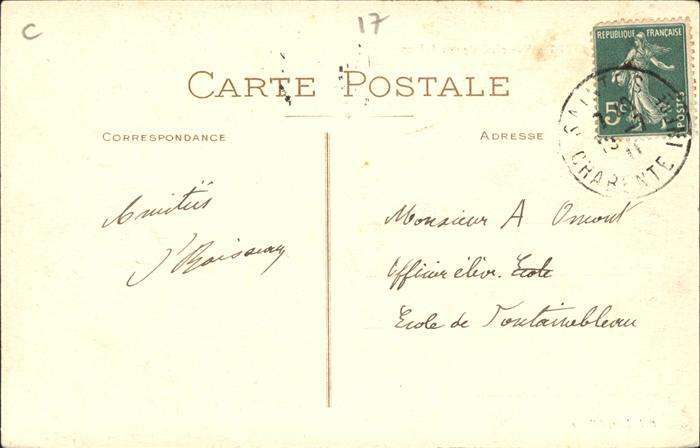 C
17
CARTE POSTALE
CORRESPONDANCE
ADRESSE
REPUBLIQUE FRANÇAISE
5c
POSTES
SAINTES
CHARENTE INF
11
Amitiés
Monsieur A Omont
Officier élève. Ecole
Ecole de Fontainebleau